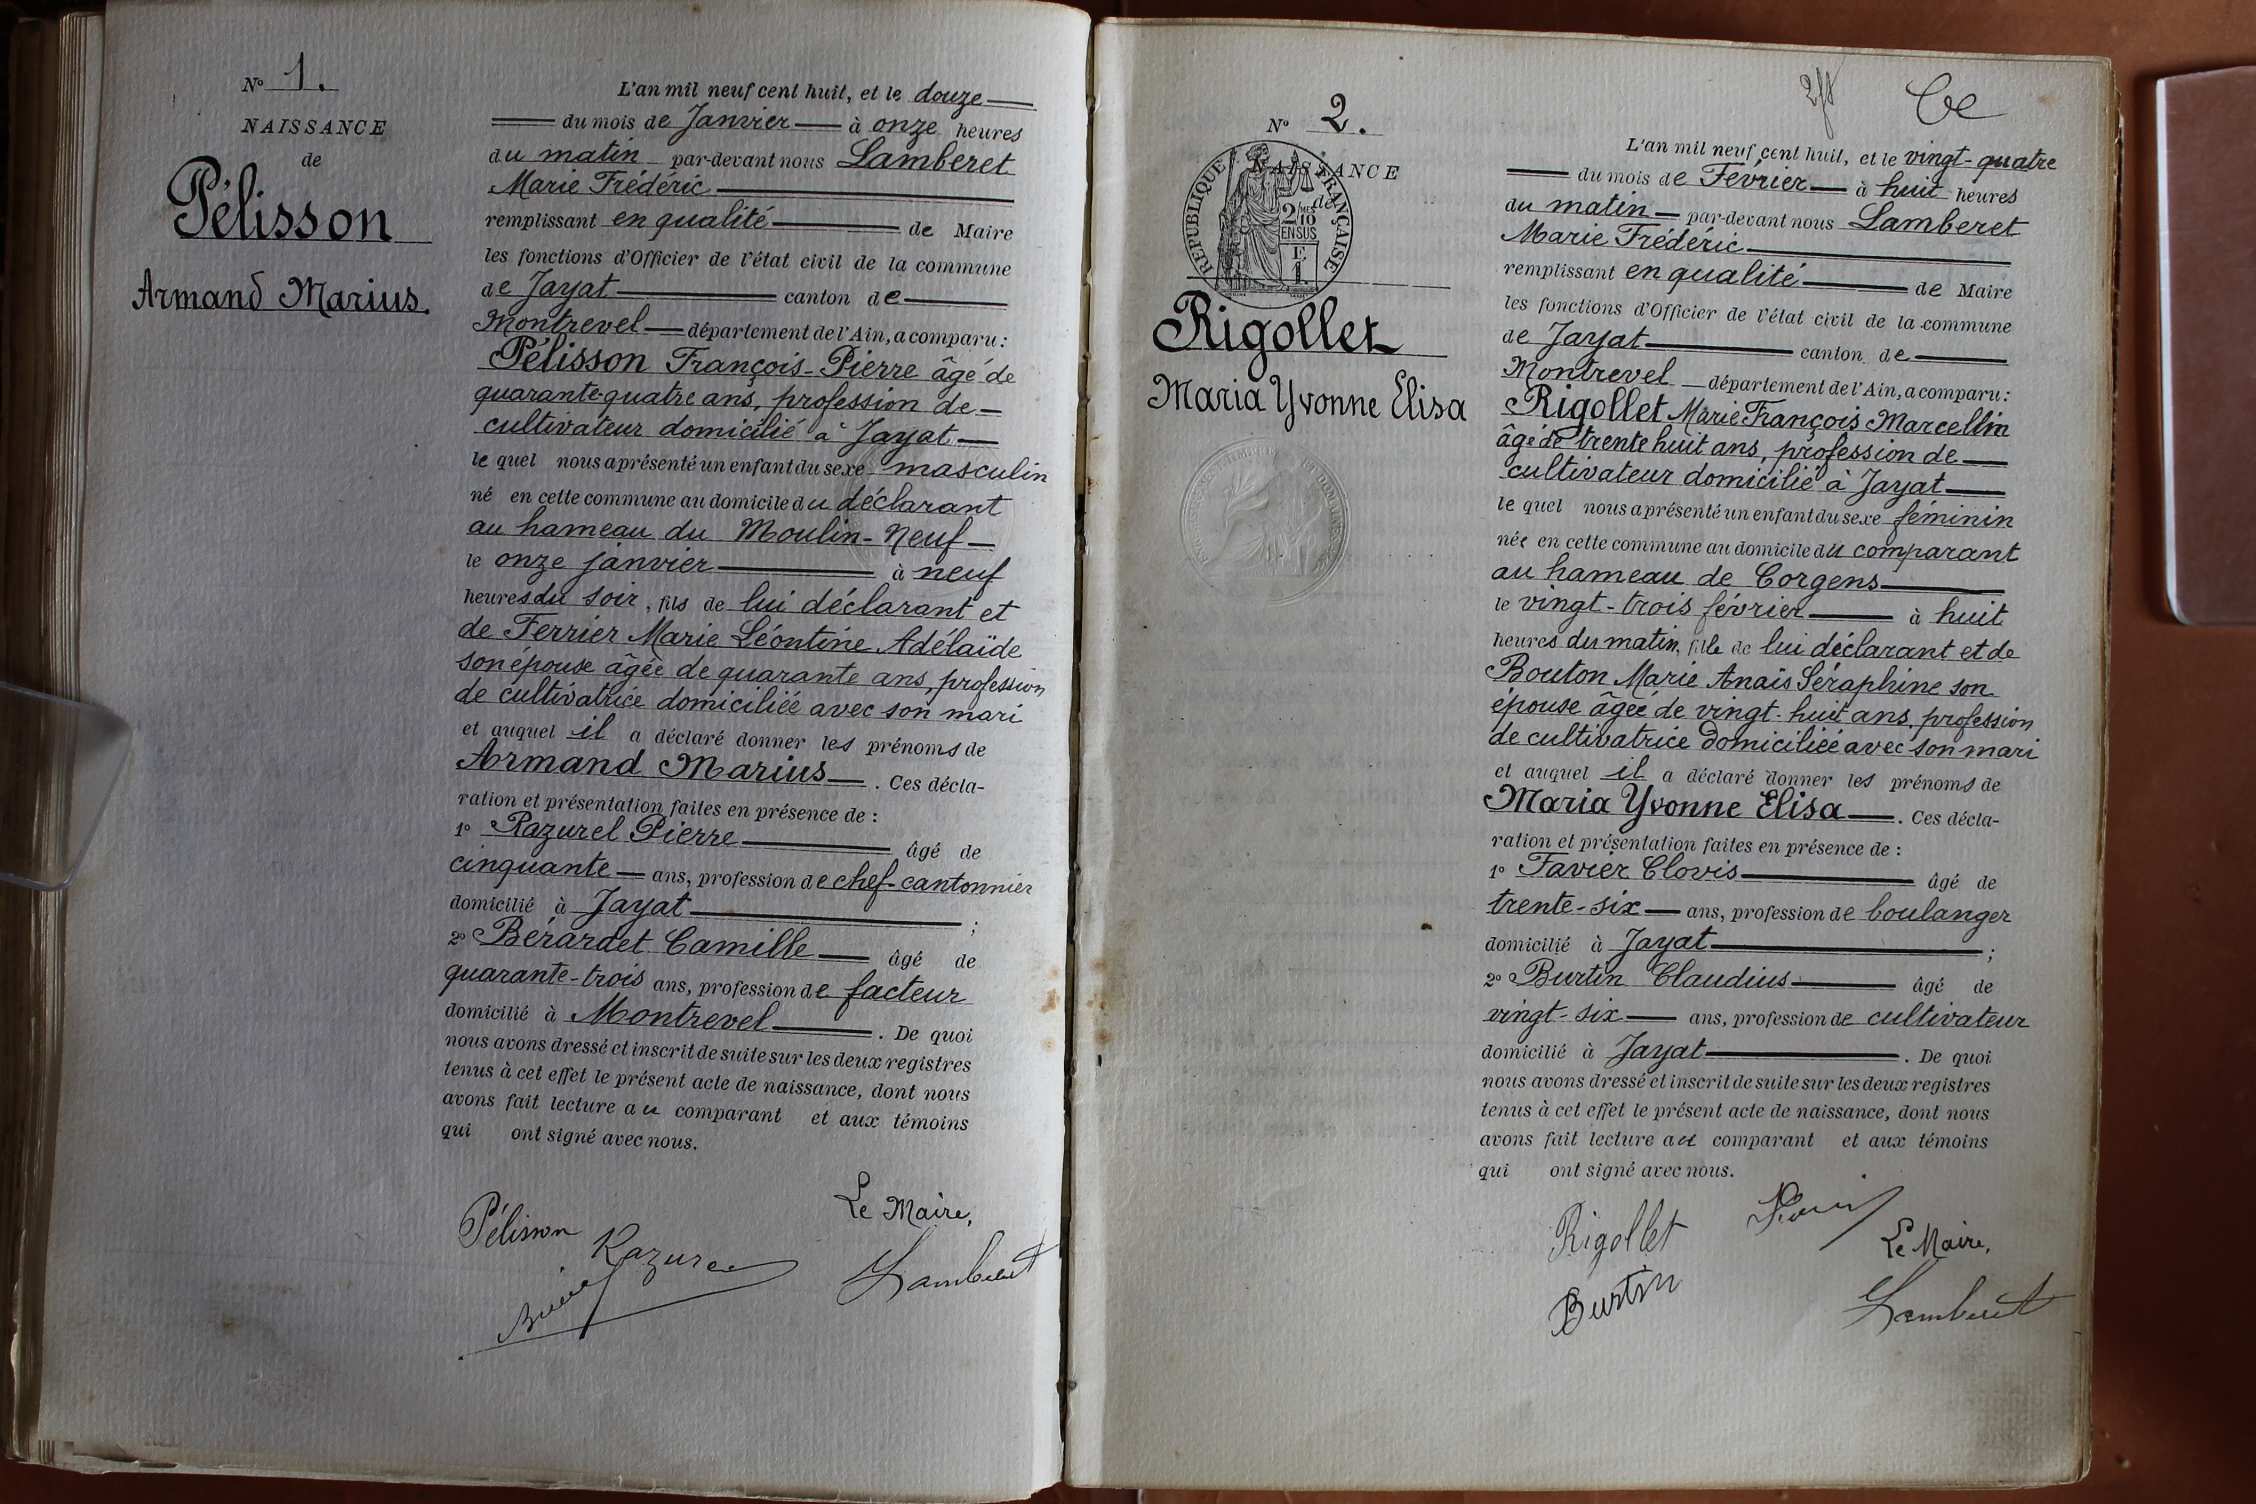 Nº 1.
NAISSANCE
de
Pélisson
Armand Marius.
L'an mil neuf cent huit, et le douze
du mois de Janvier à onze heures
du matin par-devant nous Lamberet
Marie Frédéric
remplissant en qualité de Maire
les fonctions d'Officier de l'état civil de la commune
de Jayat canton de
Montrevel département de l'Ain, a comparu :
Pélisson François-Pierre âgé de
quarante-quatre ans, profession de
cultivateur domicilié à Jayat
le quel nous a présenté un enfant du sexe masculin
né en cette commune au domicile du déclarant
au hameau du Moulin-Neuf
le onze janvier à neuf
heures du soir, fils de lui déclarant et
de Ferrier Marie Léontine Adélaïde
son épouse âgée de quarante ans, profession
de cultivatrice domiciliée avec son mari
et auquel il a déclaré donner les prénoms de
Armand Marius. Ces décla-
ration et présentation faites en présence de :
1º Razurel Pierre âgé de
cinquante ans, profession de chef-cantonnier
domicilié à Jayat ;
2º Bérardet Camille âgé de
quarante-trois ans, profession de facteur
domicilié à Montrevel. De quoi
nous avons dressé et inscrit de suite sur les deux registres
tenus à cet effet le présent acte de naissance, dont nous
avons fait lecture au comparant et aux témoins
qui ont signé avec nous.
Le Maire,
Pélisson
Razurel
Lamberet
Nº 2.
NAISSANCE
de
RÉPUBLIQUE FRANÇAISE
2/MES
10
EN SUS
E
1
Rigollet
Maria Yvonne Elisa
L'an mil neuf cent huit, et le vingt-quatre
du mois de Février à huit heures
du matin par-devant nous Lamberet
Marie Frédéric
remplissant en qualité de Maire
les fonctions d'Officier de l'état civil de la commune
de Jayat canton de
Montrevel département de l'Ain, a comparu :
Rigollet Marie François Marcellin
âgé de trente huit ans, profession de
cultivateur domicilié à Jayat
le quel nous a présenté un enfant du sexe féminin
née en cette commune au domicile du comparant
au hameau de Corgens
le vingt-trois février à huit
heures du matin, fille de lui déclarant et de
Bouton Marie Anais Séraphine son
épouse âgée de vingt-huit ans, profession
de cultivatrice domiciliée avec son mari
et auquel il a déclaré donner les prénoms de
Maria Yvonne Elisa. Ces décla-
ration et présentation faites en présence de :
1º Favier Clovis âgé de
trente-six ans, profession de boulanger
domicilié à Jayat ;
2º Burtin Claudius âgé de
vingt-six ans, profession de cultivateur
domicilié à Jayat. De quoi
nous avons dressé et inscrit de suite sur les deux registres
tenus à cet effet le présent acte de naissance, dont nous
avons fait lecture au comparant et aux témoins
qui ont signé avec nous.
Rigollet
Le Maire,
Burtin
Lamberet